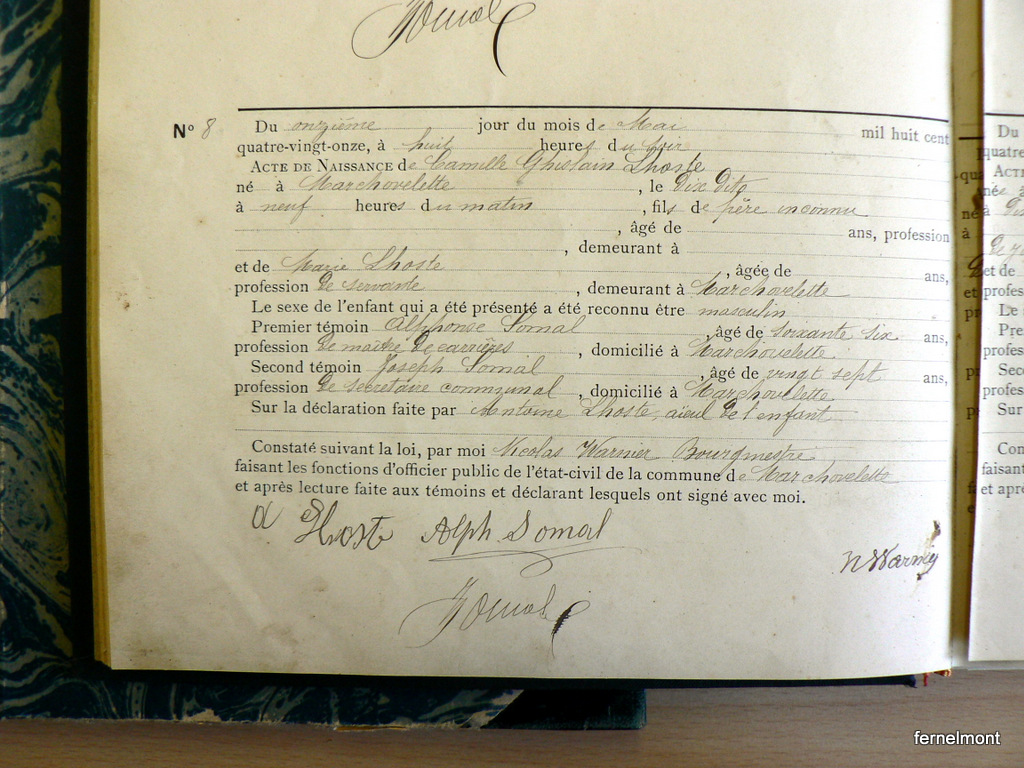 Somal
Nº 8 Du onzième jour du mois de Mai mil huit cent
quatre-vingt-onze, à huit heures du soir
ACTE DE NAISSANCE de Camille Ghislain Lhoste
né à Marchovelette, le dix dito
à neuf heures du matin, fils de père inconnu
, âgé de ans, profession
, demeurant à
et de Marie Lhoste, âgée de ans,
profession de servante, demeurant à Marchovelette
Le sexe de l'enfant qui a été présenté a été reconnu être masculin
Premier témoin Alphonse Somal, âgé de soixante six ans,
profession de maître de carrières, domicilié à Marchovelette
Second témoin Joseph Somal, âgé de vingt sept ans,
profession de secrétaire communal, domicilié à Marchovelette
Sur la déclaration faite par Antoine Lhoste, aïeul de l'enfant
Constaté suivant la loi, par moi Nicolas Warnier Bourgmestre
faisant les fonctions d'officier public de l'état-civil de la commune de Marchovelette
et après lecture faite aux témoins et déclarant lesquels ont signé avec moi.
a Lhoste Alph Somal
N Warnier
J Somal
Du
quatre
ACTE
née à
à
et de
profes
Le
Pre
profes
Seco
profes
Sur
Con
faisant
et apr
fernelmont